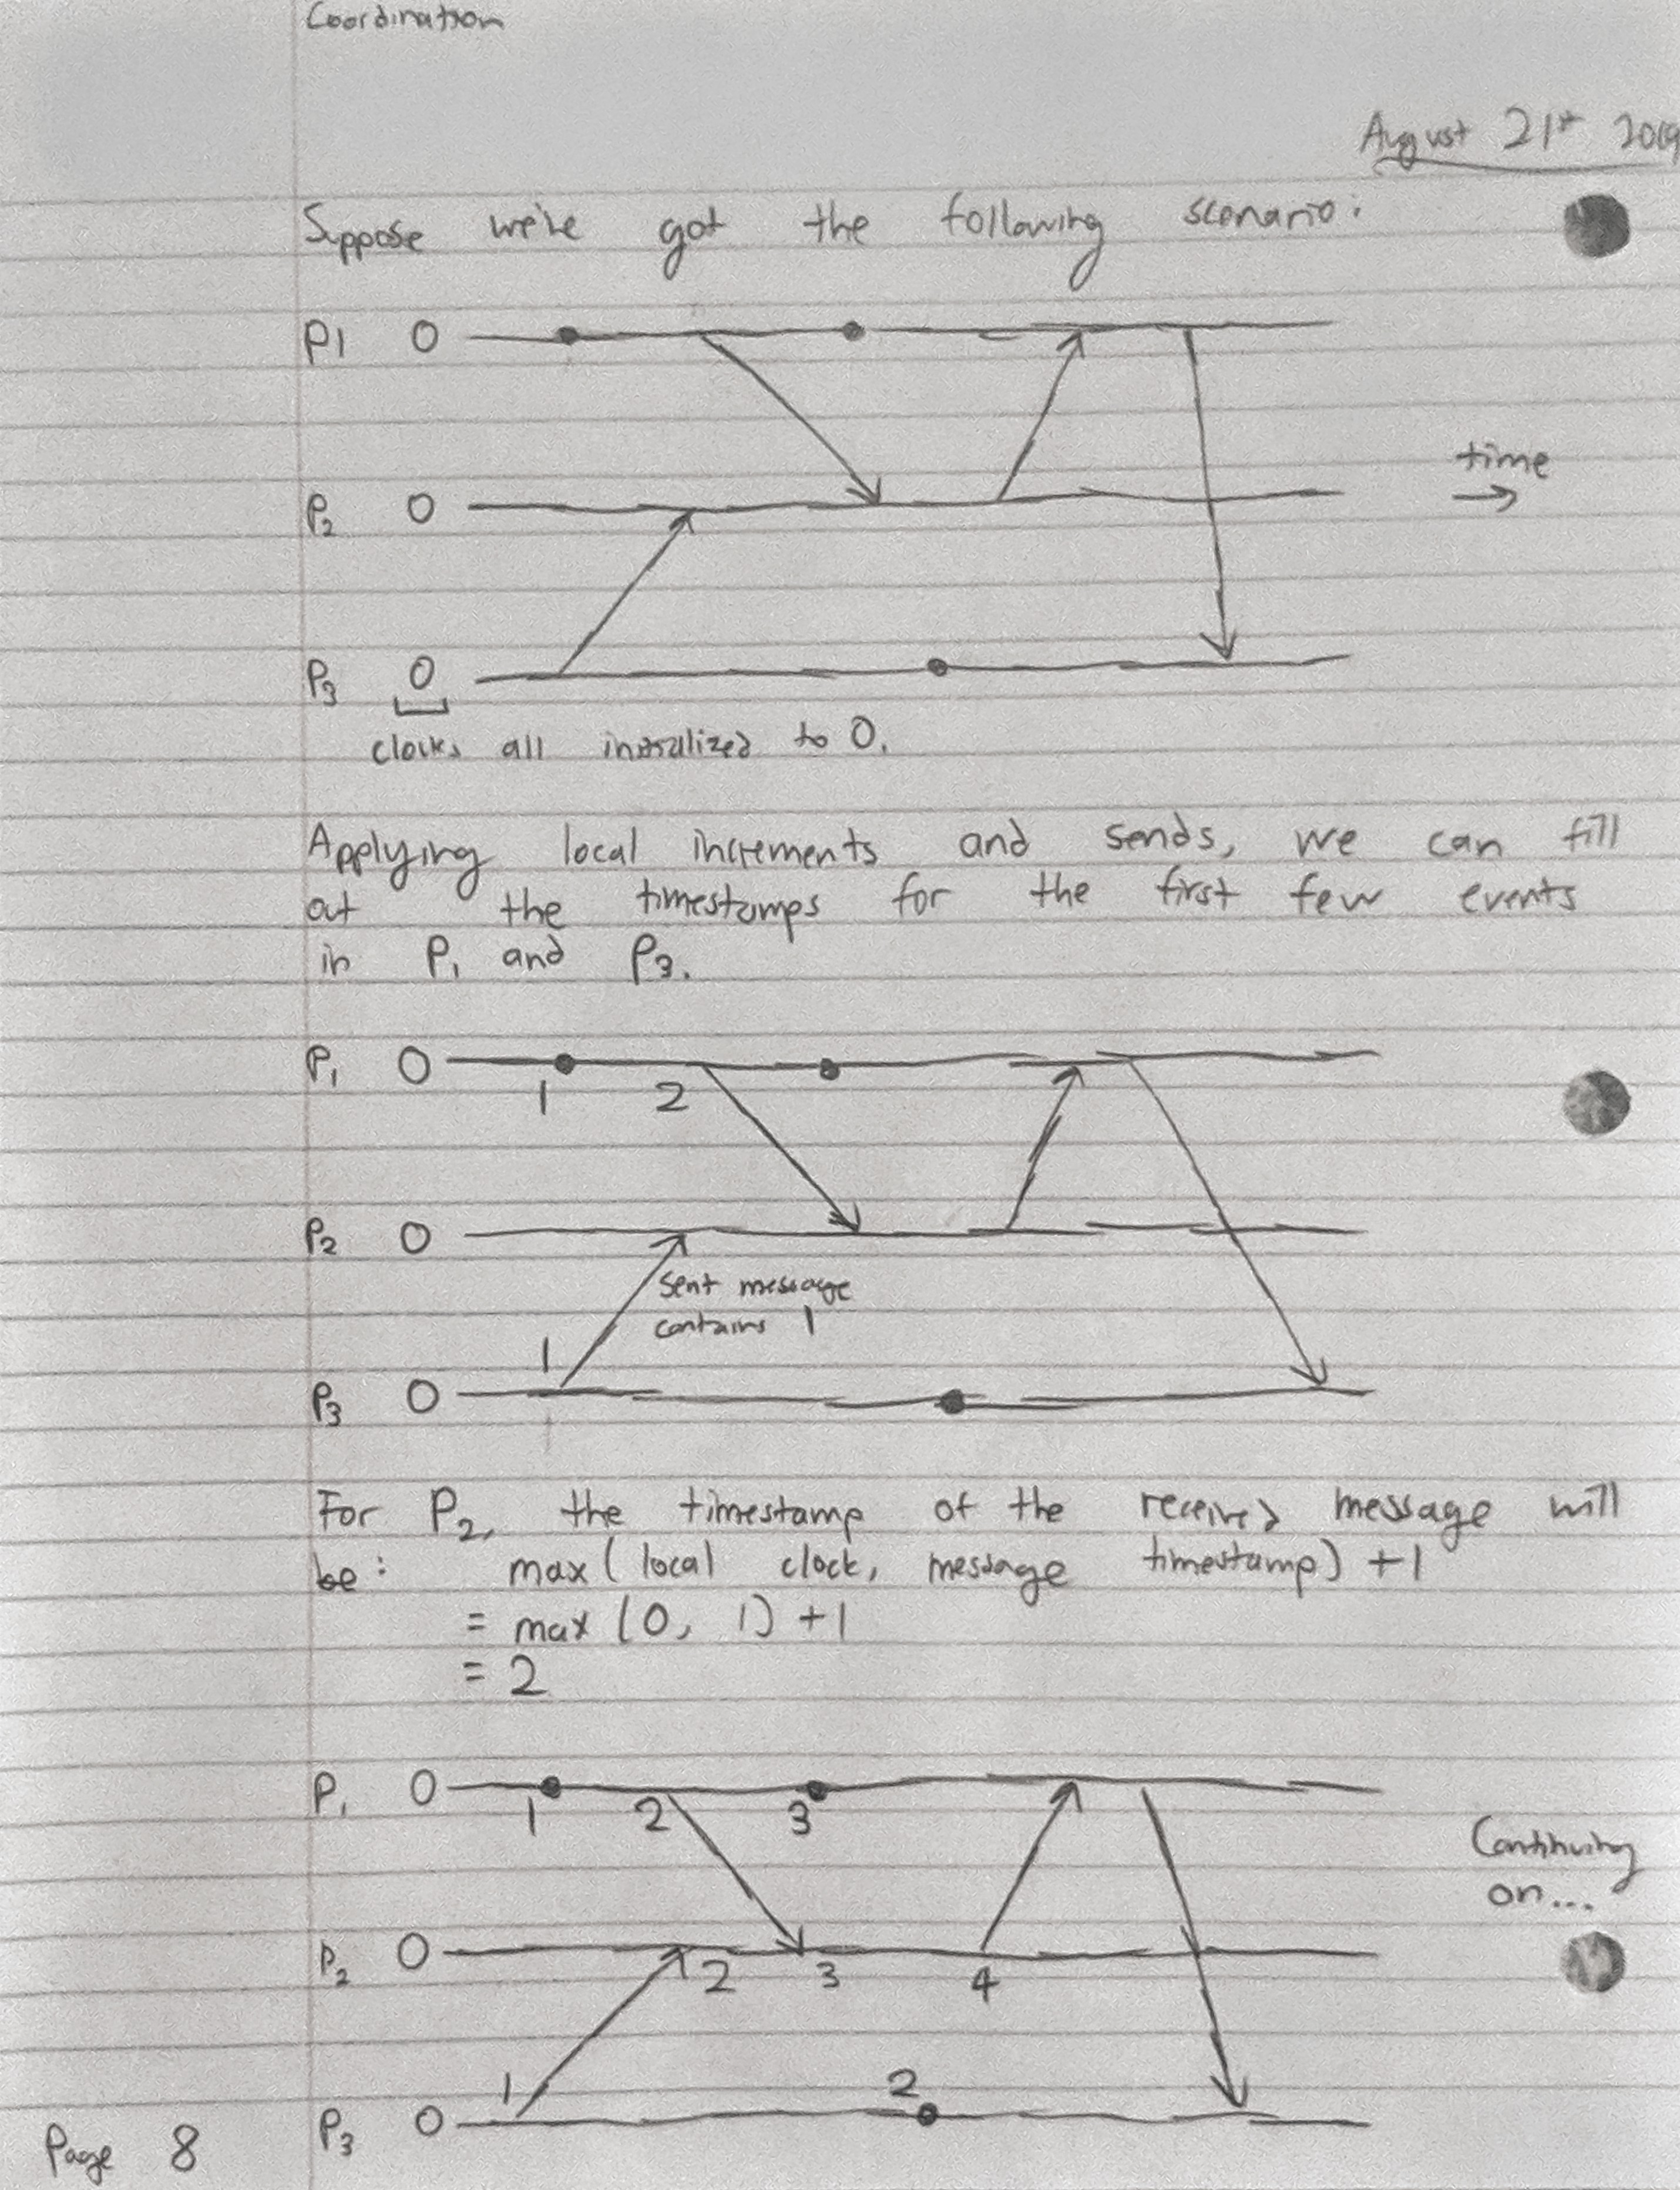 Coordination
August 21st 2019
Suppose we've got the following scenario:
P1 0
time
P2 0
P3 0
clocks all initialized to 0.
Applying local increments and sends, we can fill
out the timestamps for the first few events
in P1 and P3.
P1 0
1 2
P2 0
sent message
contains 1
1
P3 0
For P2, the timestamp of the received message will
be: max(local clock, message timestamp) +1
= max (0, 1) +1
= 2
P1 0
1 2 3
Continuing
on...
P2 0
2 3 4
1 2
P3 0
Page 8